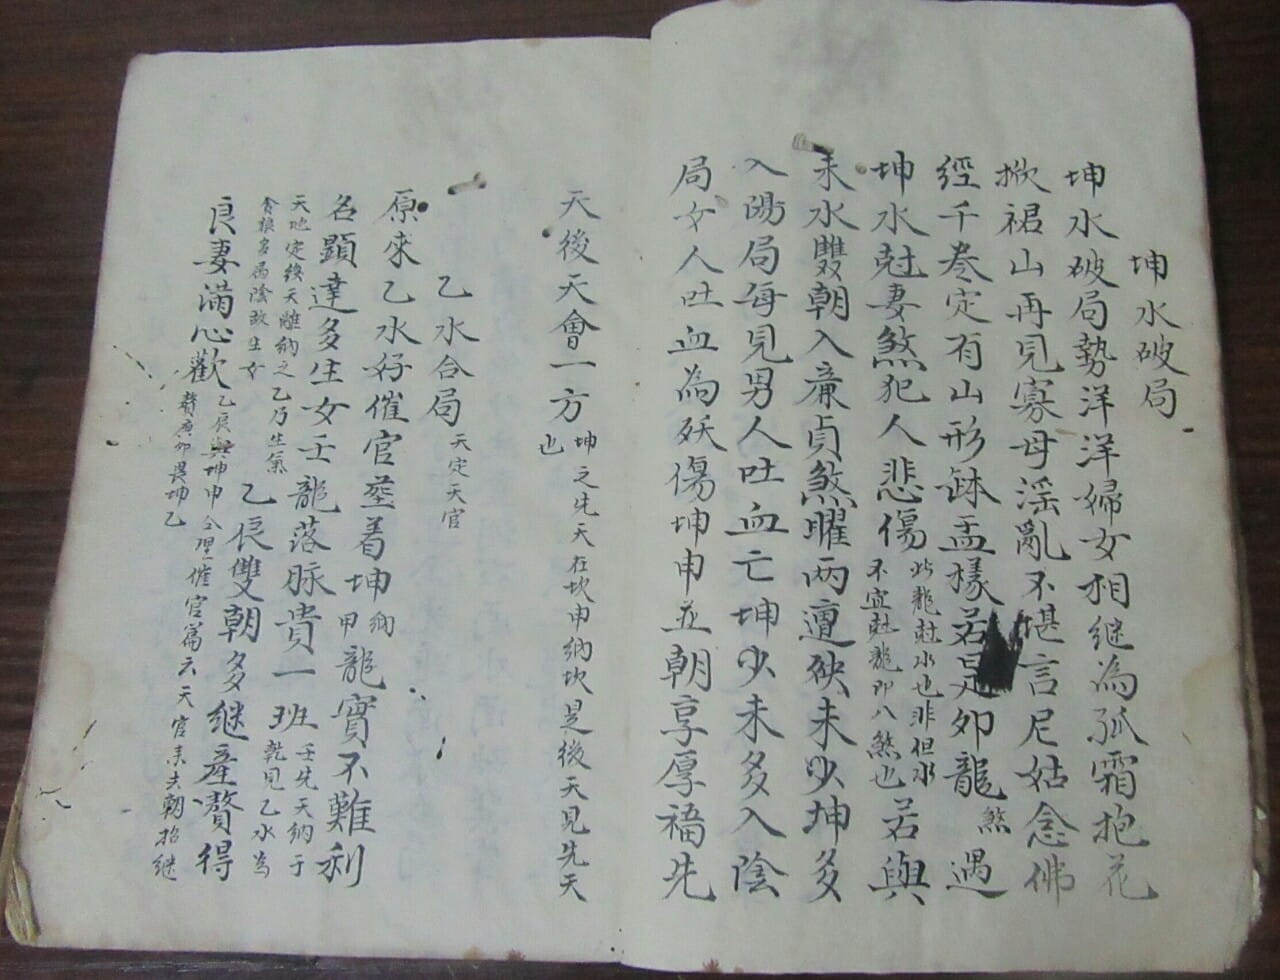 坤水破局
坤水破局勢洋洋婦女相継為孤霜抱花
掀裙山再見寡母淫亂不堪言尼姑念佛
經千卷定有山形鉢盂樣若是卯龍煞遇
坤水尅妻煞犯人悲傷此龍尅水也非但水不宜尅龍即八煞也若與
未水雙朝入廉貞煞曜两邅殃未少坤多
入陽局每見男人吐血亡坤少未多入陰
局女人吐血為殀傷坤申並朝享厚福先
天後天會一方坤之先天在坎申納坎是後天見先天也
乙水合局天定天官
原來乙水好催官塋着坤納甲龍實不難利
名顯達多生女壬龍落脉貴一班壬先天納于乾見乙水為
天地定位天離納之乙乃生氣貪狼多為陰故生女
乙辰雙朝多継產贅得
良妻滿心歡乙辰與坤申合理催官篇云天官未夫朝招継贅庚卯畏坤乙